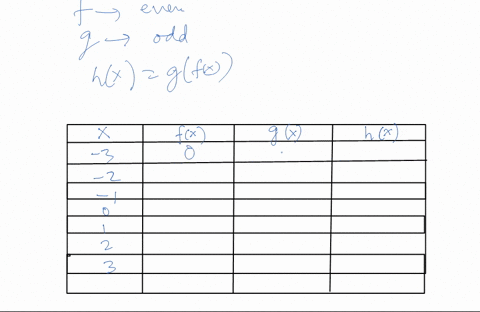 f → even
g → odd
h(x) = g(f(x))
x f(x) g(x) h(x)
-3 0
-2
-1
0
1
2
3